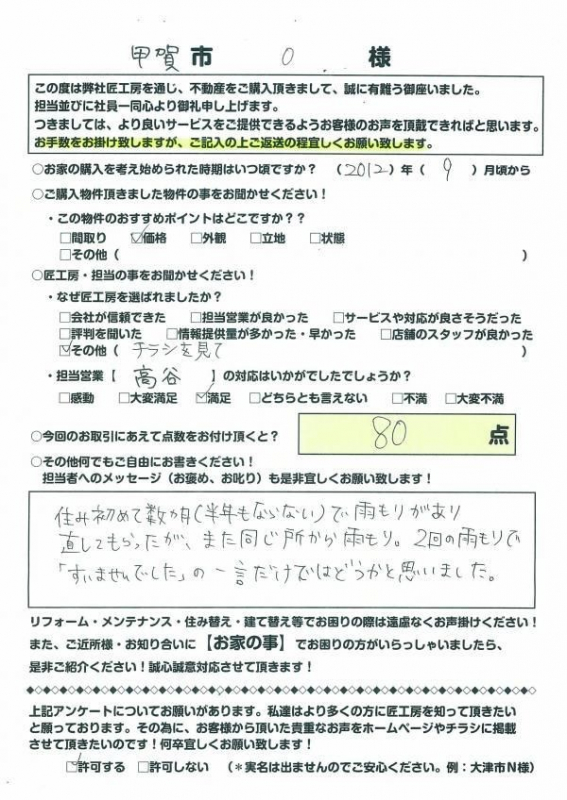 甲賀市 O 様
この度は弊社匠工房を通じ、不動産をご購入頂きまして、誠に有難う御座いました。
担当並びに社員一同心より御礼申し上げます。
つきましては、より良いサービスをご提供できるようお客様のお声を頂戴できればと思います。
お手数をお掛け致しますが、ご記入の上ご返送の程宜しくお願い致します。
○お家の購入を考え始められた時期はいつ頃ですか？ （2012）年（ 9 ）月頃から
○ご購入物件頂きました物件の事をお聞かせください！
・この物件のおすすめポイントはどこですか？？
□間取り ☑価格 □外観 □立地 □状態
□その他（ ）
○匠工房・担当の事をお聞かせください！
・なぜ匠工房を選ばれましたか？
□会社が信頼できた □担当営業が良かった □サービスや対応が良さそうだった
□評判を聞いた □情報提供量が多かった・早かった □店舗のスタッフが良かった
☑その他（ チラシを見て ）
・担当営業【 高谷 】の対応はいかがでしたでしょうか？
□感動 □大変満足 ☑満足 □どちらとも言えない □不満 □大変不満
○今回のお取引にあえて点数をお付け頂くと？ 80 点
○その他何でもご自由にお書きください！
担当者へのメッセージ（お褒め、お叱り）も是非宜しくお願い致します！
住み初めて数カ月（半年もならない）で雨もりがあり
直してもらったが、また同じ所から雨もり。2回の雨もりで
「すいませんでした」の一言だけではどうかと思いました。
リフォーム・メンテナンス・住み替え・建て替え等でお困りの際は遠慮なくお声掛けください！
また、ご近所様・お知り合いに【お家の事】でお困りの方がいらっしゃいましたら、
是非ご紹介ください！誠心誠意対応させて頂きます！
上記アンケートについてお願いがあります。私達はより多くの方に匠工房を知って頂きたい
と願っております。その為に、お客様から頂いた貴重なお声をホームページやチラシに掲載
させて頂きたいのです！何卒宜しくお願い致します！
☑許可する □許可しない （＊実名は出ませんのでご安心ください。例：大津市N様）